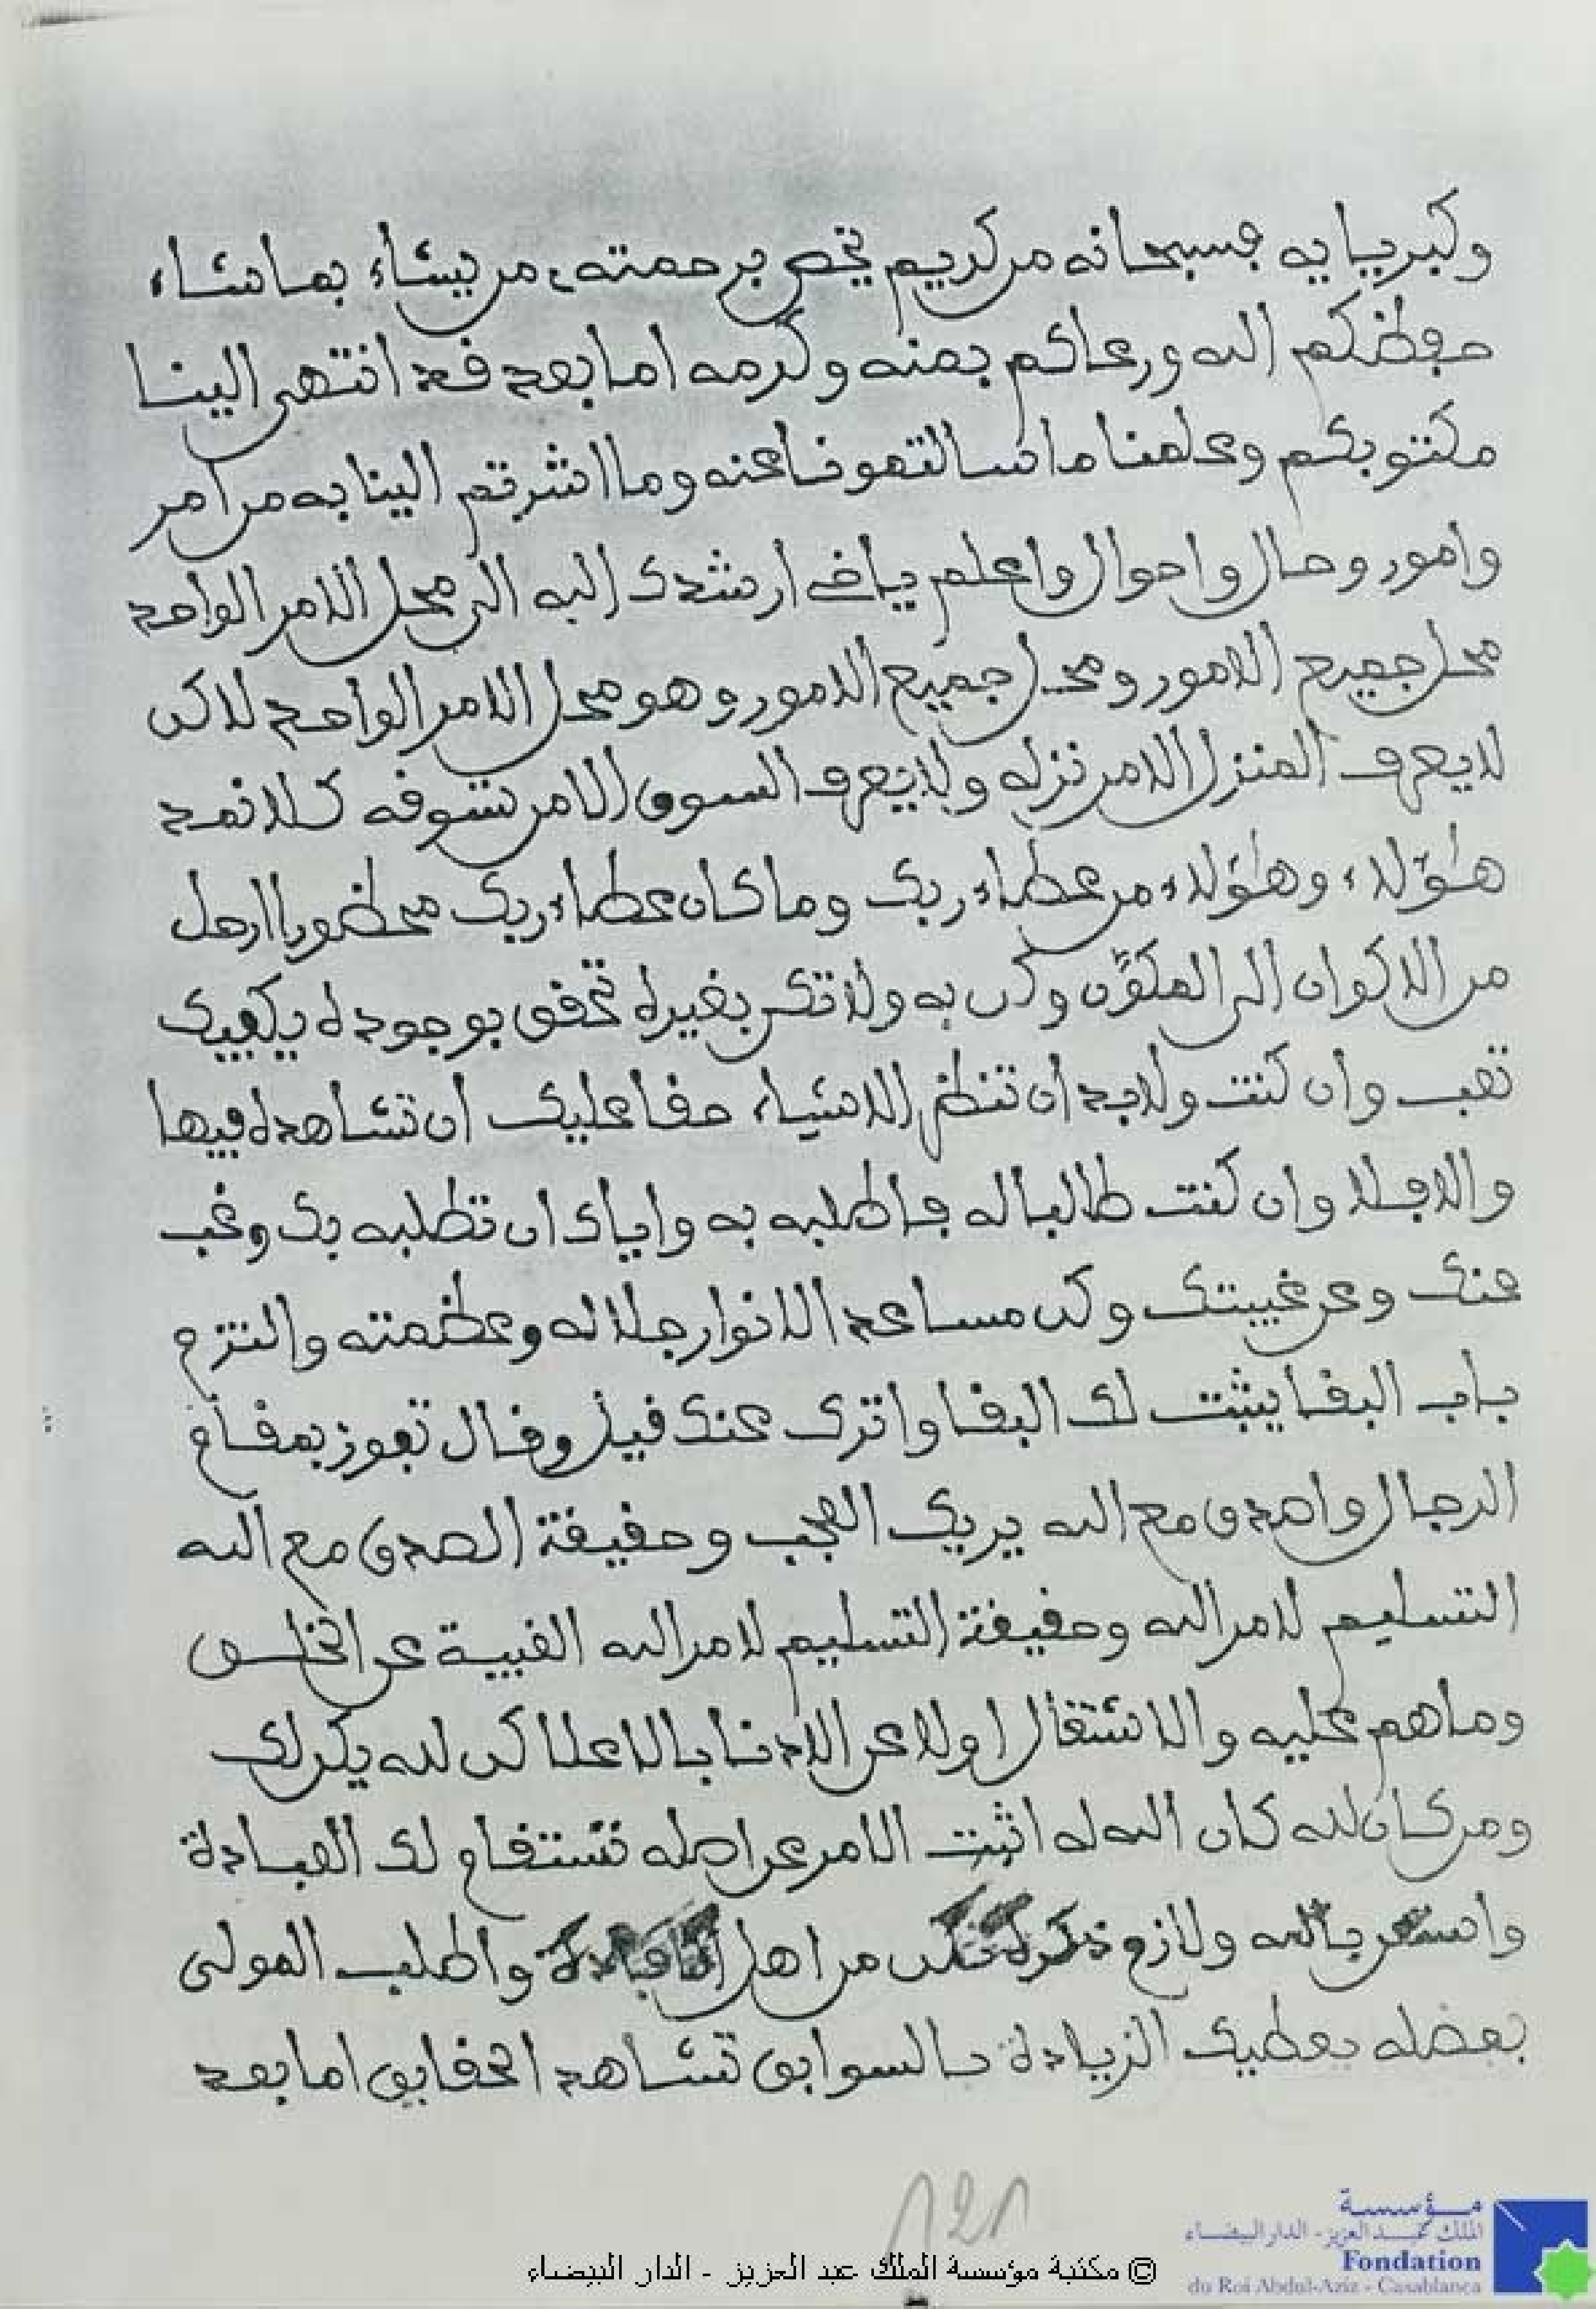 وكبريايه فسبحانه من كريم يخص برحمته من يشاء بما شاء
حفظكم الله ورعاكم بمنه وكرمه اما بعد فقد انتهى الينا
مكتوبكم وعلمنا ما سالتمونا عنه وما اشرتم الينا به من امر
وامور وحال واحوال واعلم ياخي ارشدك اليه الى محل الامر الواحد
محل جميع الامور ومحل جميع الامور وهو محل الامر الواحد لاكن
لا يعرف المنزل الا من نزله ولا يعرف السوى الا من تشوقه كلا نمد
هـؤلاء وهـؤلاء من عطاء ربك وما كان عطاء ربك محظورا ارحل
من الاكوان الى المكوّن وكن به ولا تكن بغيره تحقق بوجوده يكفيك
تعب وان كنت ولابد ان تنظر الاشياء حقا عليك ان تشاهده فيها
والا فلا وان كنت طالبا له فاطلبه به واياك ان تطلبه بك وغب
عنك وعن غيبتك وكن مساعد الانوار جلاله وعظمته والتزم
باب البقا يثبت لك البقا واترك عندك قيل وقال تفوز بمقام
الرجال واصدق مع الله يريك العجب وحقيقة الصدق مع الله
التسليم لامر الله وحقيقة التسليم لامر الله الغيبة عن الخلق
وما هم عليه والاشتغال اولا عن الادنا بالاعلا كن لله يكن لك
ومن كان لله كان الله له اثبت الامر عن اصله تستقام لك العبادة
واستعن بالله ولازم ذكره تكن من اهل واطلب المولى
بفضله يعطيك الزيادة بالسوابق تشاهد الحقايق اما بعد
١٢١
مؤسسة
الملك عبد العزيز - الدار البيضاء
Fondation
du Roi Abdul-Aziz - Casablanca
© مكتبة مؤسسة الملك عبد العزيز - الدار البيضاء